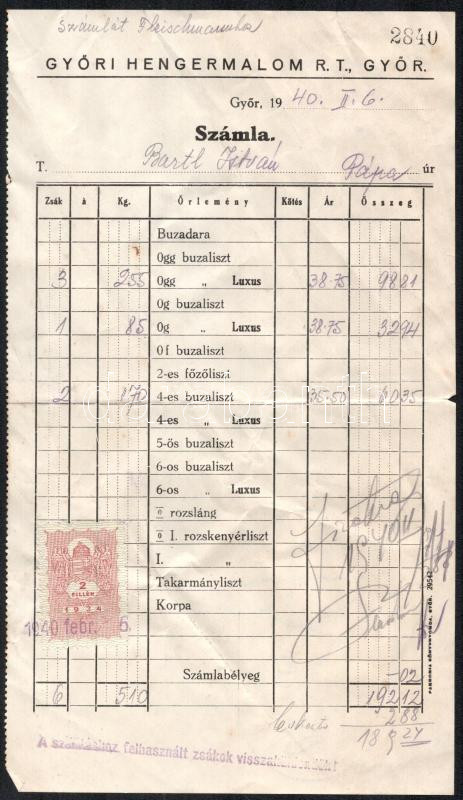 Számlát Fleischmannhoz
2840
GYŐRI HENGERMALOM R. T., GYŐR.
Győr, 1940. II. 6.
Számla.
T. Bartl István Pápa úr
Zsák à Kg. Őrlemény Kötés Ár Összeg
Buzadara
0gg buzaliszt
3 255 0gg „ Luxus 38·75 9881
0g buzaliszt
1 85 0g „ Luxus 38·75 3294
0f buzaliszt
2-es főzőliszt
2 170 4-es buzaliszt 35·50 6035
4-es „ Luxus
5-ös buzaliszt
6-os buzaliszt
6-os „ Luxus
0 rozsláng
0 I. rozskenyérliszt
I. „
Takarmányliszt
Korpa
2
FILLÉR
1924
1940 febr. 6.
Számlabélyeg -02
6 510 19212
288
189 24
A szállításhoz felhasznált zsákok visszaküldendők!
PANNONIA KÖNYVNYOMDA, GYŐR. 29542
darabanth